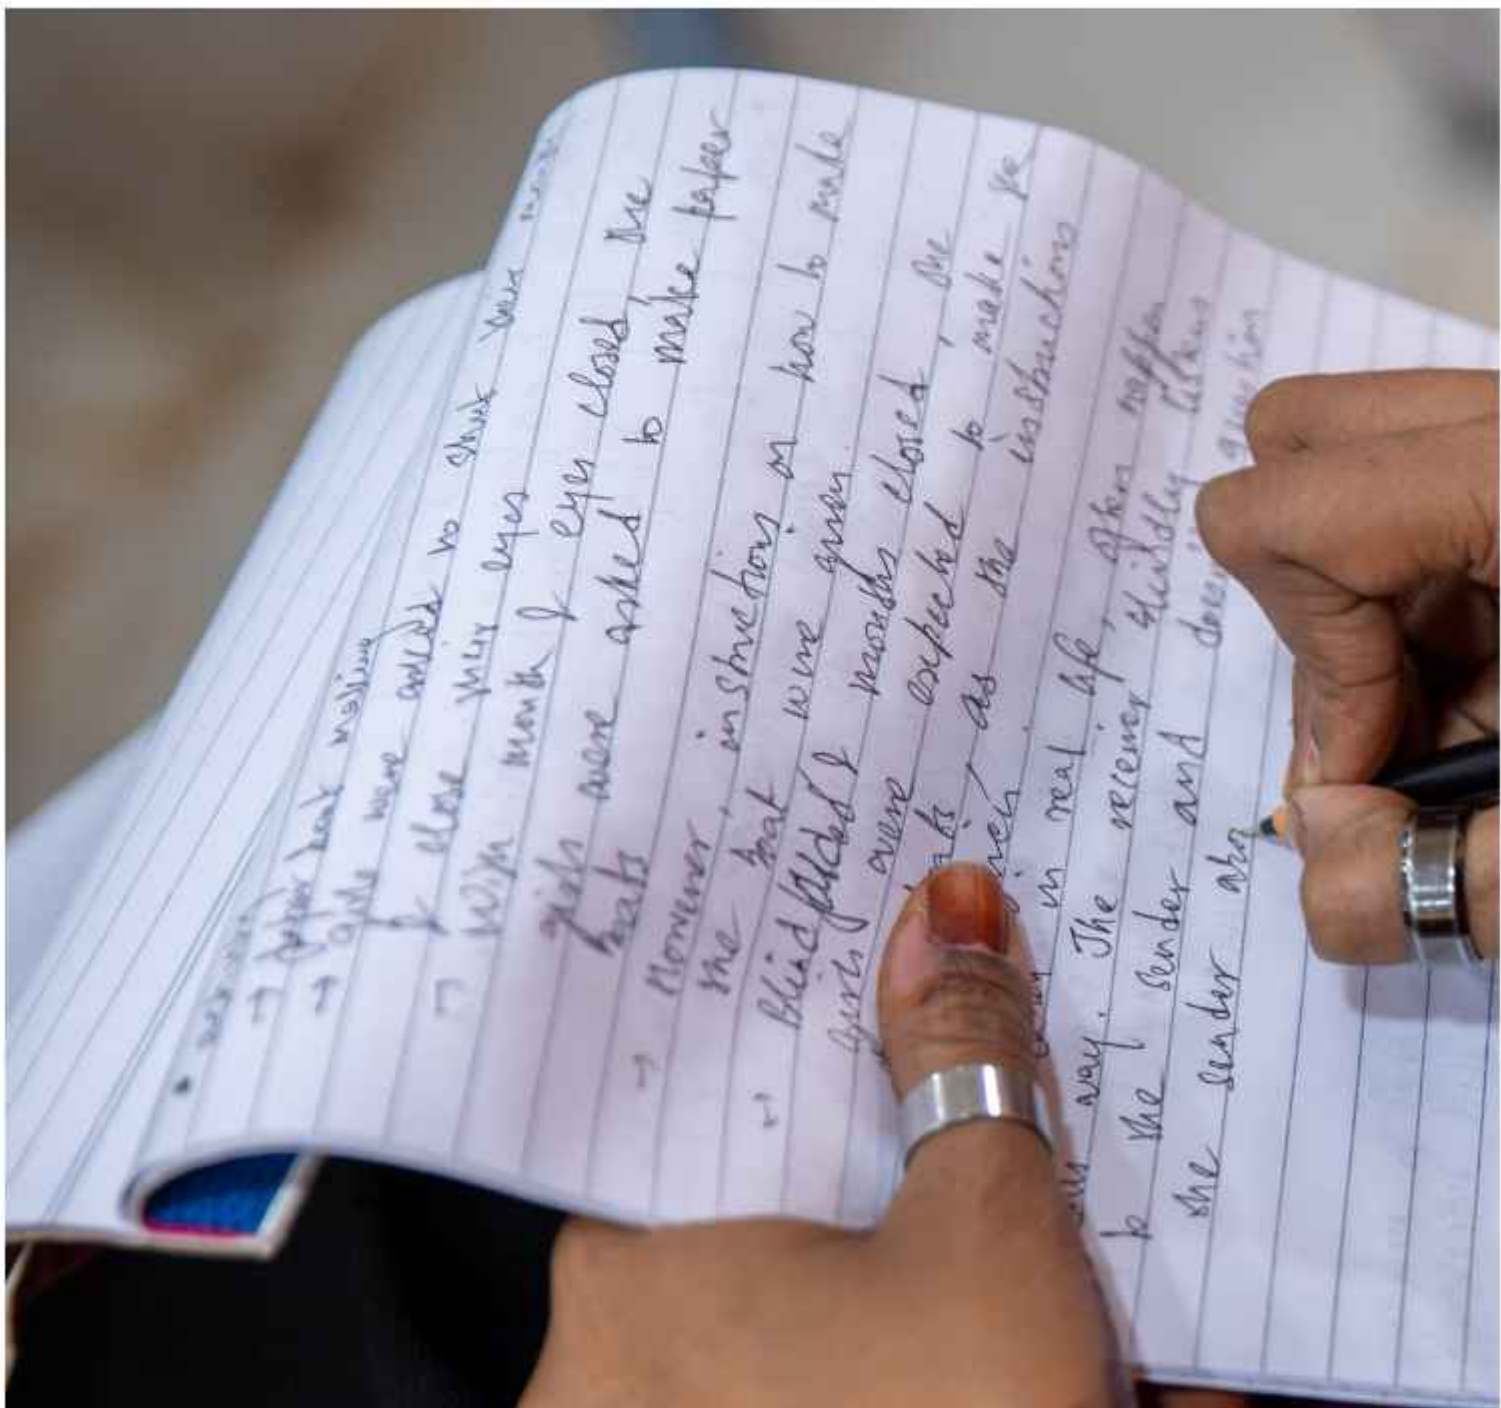 → paper boat making
→ girls were asked to shut their
& close their eyes
→ With mouth & eyes closed the
girls were asked to make paper
boats
→ Moreover, instructions on how to make
the boat were given.
→ Blindfolded & mouths closed, the
girls were expected to make
as the instructions
in real life, often happen
way. The receiver, blindly listens
to the sender and question
the sender